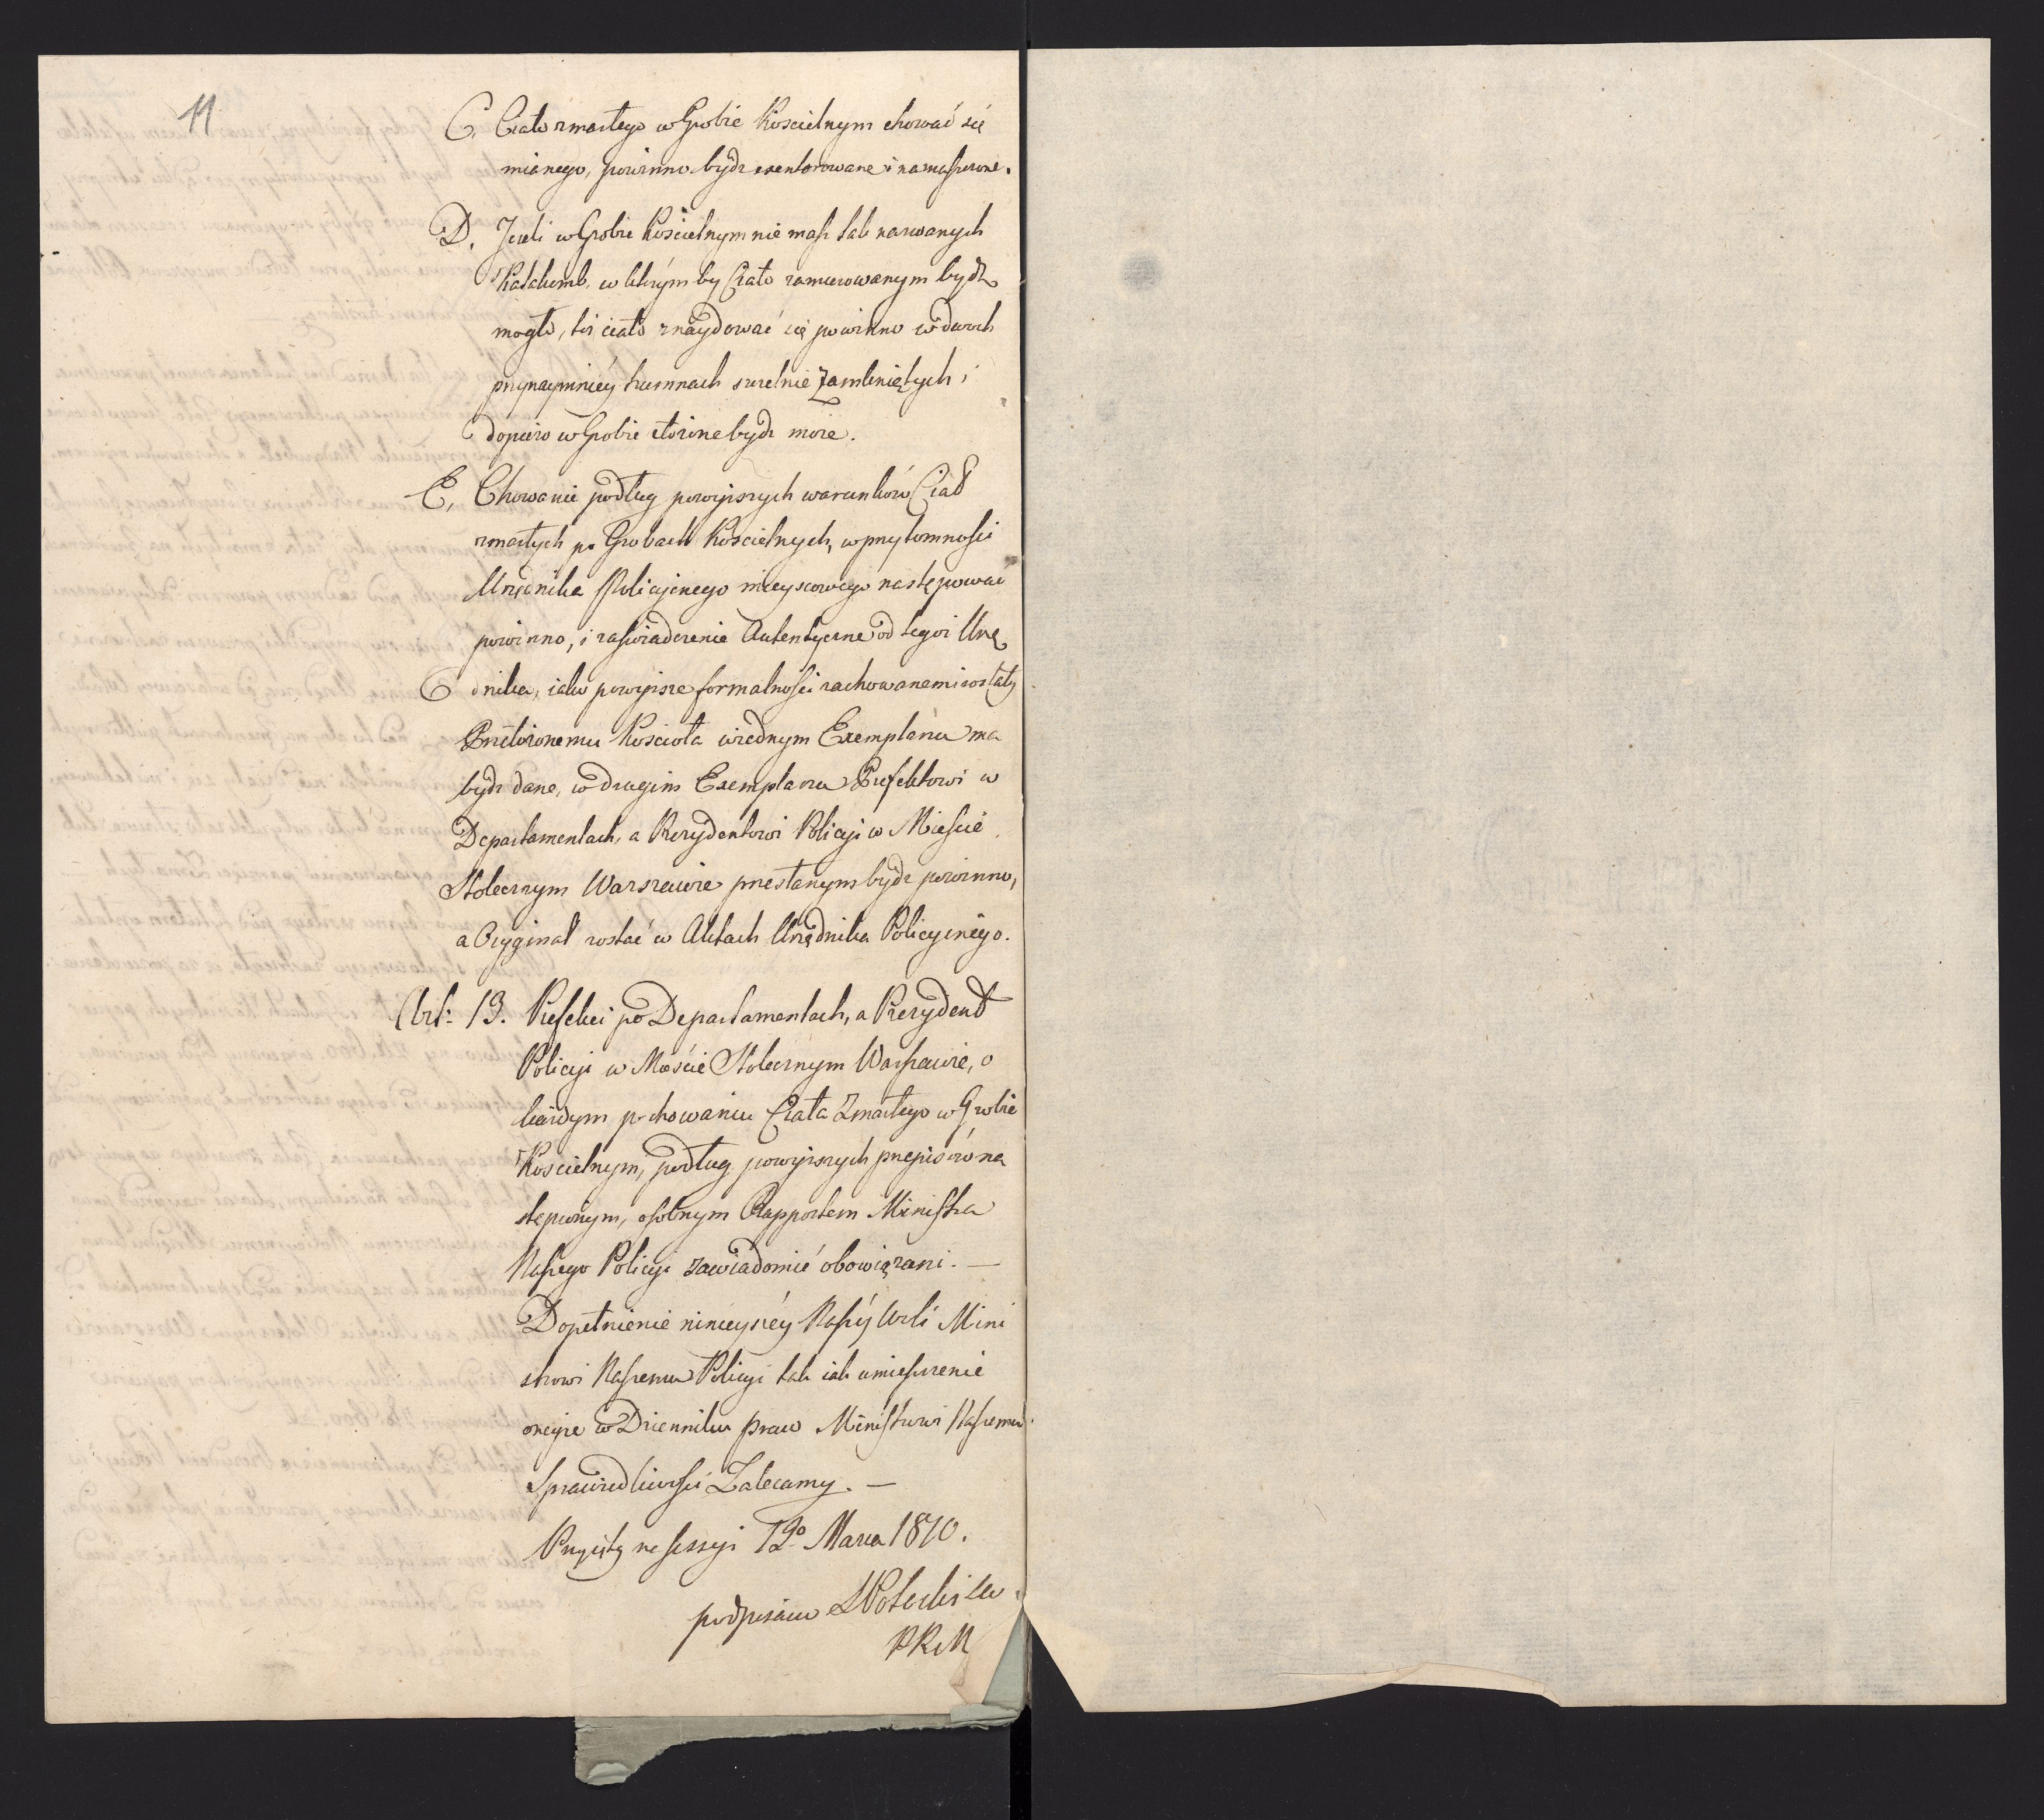 11
C. Ciało zmarłego w Grobie Kościelnym chować się
mianego, powinno bydź exenterowane i namaszczone.
D. Jeżeli w Grobie Kościelnym nie masz tak nazwanych
Katakumb, w którym by Ciało zamurowanym bydź
mogło, też ciało znaydować się powinno w dwóch
przynaymniéy trumnach szczelnie Zamkniętych i
dopiero w Grobie złożone bydź może.
E, Chowanie podług powyższych warunków Ciał
zmarłych po Grobach Kościelnych, w przytomności
Urzędnika Policyjnego mieyscowego następować
powinno, i zaświadczenie Autentyczne od tegoż Urzę
dnika, iako powyższe formalności zachowanemi zostały
Przełożonemu Kościoła w iednym Exemplarzu ma
bydź dane, w drugim Exemplarzu Prefektowi w
Departamentach, a Prezydentowi Policyi w Mieście
Stołecznym Warszawie przesłanym bydź powinno,
a Oryginał zostać w Aktach Urzędnika Policyinégo.
Art: 13. Prefekci po Departamentach, a Prezydent
Policyi w Mieście Stołecznym Warszawie, o
każdym pochowaniu Ciała Zmarłego w Grobie
Kościelnym, podług powyższych przepisów na
stępionym, osobnym Rapportem Ministra
Naszego Policyi zawiadomić obowiązani. —
Dopełnienie ninieyszéy Naszéy Woli Mini
strowi Naszemu Policyi tak iak umieszczenie
oneyże w Dzienniku praw Ministrowi Naszemu
Sprawiedliwości Zalecamy. —
Przyięty na sessyi 12º Marca 1810.
podpisano S Potocki
PRiM